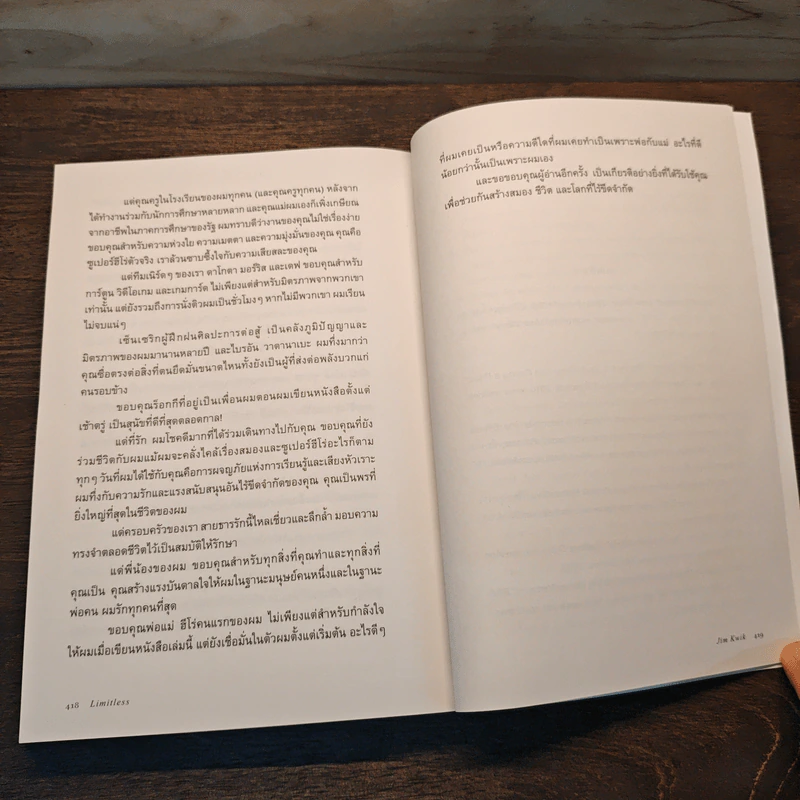 แด่คุณครูในโรงเรียนของผมทุกคน (และคุณครูทุกคน) หลังจาก
ได้ทำงานร่วมกับนักการศึกษาหลายหลาก และคุณแม่ผมเองก็เพิ่งเกษียณ
จากอาชีพในภาคการศึกษาของรัฐ ผมทราบดีว่างานของคุณไม่ใช่เรื่องง่าย
ขอบคุณสำหรับความห่วงใย ความเมตตา และความมุ่งมั่นของคุณ คุณคือ
ซูเปอร์ฮีโร่ตัวจริง เราล้วนซาบซึ้งใจกับความเสียสละของคุณ
แด่ทีมเนิร์ดๆ ของเรา ดาโกตา มอร์ริส และเดฟ ขอบคุณสำหรับ
การ์ตูน วิดีโอเกม และเกมการ์ด ไม่เพียงแต่สำหรับมิตรภาพจากพวกเขา
เท่านั้น แต่ยังรวมถึงการนั่งติวผมเป็นชั่วโมงๆ หากไม่มีพวกเขา ผมเรียน
ไม่จบแน่ๆ
เซ็นเซริกผู้ฝึกฝนศิลปะการต่อสู้ เป็นคลังภูมิปัญญาและ
มิตรภาพของผมมานานหลายปี และไบรอัน วาตานาเบะ ผมทึ่งมากว่า
คุณซื่อตรงต่อสิ่งที่ตนยึดมั่นขนาดไหนทั้งยังเป็นผู้ที่ส่งต่อพลังบวกแก่
คนรอบข้าง
ขอบคุณร็อกกีที่อยู่เป็นเพื่อนผมตอนผมเขียนหนังสือตั้งแต่
เช้าตรู่ เป็นสุนัขที่ดีที่สุดตลอดกาล!
แด่ที่รัก ผมโชคดีมากที่ได้ร่วมเดินทางไปกับคุณ ขอบคุณที่ยัง
ร่วมชีวิตกับผมแม้ผมจะคลั่งไคล้เรื่องสมองและซูเปอร์ฮีโร่อะไรก็ตาม
ทุกๆ วันที่ผมได้ใช้กับคุณคือการผจญภัยแห่งการเรียนรู้และเสียงหัวเราะ
ผมทึ่งกับความรักและแรงสนับสนุนอันไร้ขีดจำกัดของคุณ คุณเป็นพรที่
ยิ่งใหญ่ที่สุดในชีวิตของผม
แด่ครอบครัวของเรา สายธารรักนี้ไหลเชี่ยวและลึกล้ำ มอบความ
ทรงจำตลอดชีวิตไว้เป็นสมบัติให้รักษา
แด่พี่น้องของผม ขอบคุณสำหรับทุกสิ่งที่คุณทำและทุกสิ่งที่
คุณเป็น คุณสร้างแรงบันดาลใจให้ผมในฐานะมนุษย์คนหนึ่งและในฐานะ
พ่อคน ผมรักทุกคนที่สุด
ขอบคุณพ่อแม่ ฮีโร่คนแรกของผม ไม่เพียงแต่สำหรับกำลังใจ
ให้ผมเมื่อเขียนหนังสือเล่มนี้ แต่ยังเชื่อมั่นในตัวผมตั้งแต่เริ่มต้น อะไรดีๆ
418 Limitless
ที่ผมเคยเป็นหรือความดีใดที่ผมเคยทำเป็นเพราะพ่อกับแม่ อะไรที่ดี
น้อยกว่านั้นเป็นเพราะผมเอง
และขอขอบคุณผู้อ่านอีกครั้ง เป็นเกียรติอย่างยิ่งที่ได้รับใช้คุณ
เพื่อช่วยกันสร้างสมอง ชีวิต และโลกที่ไร้ขีดจำกัด
Jim Kwik 419